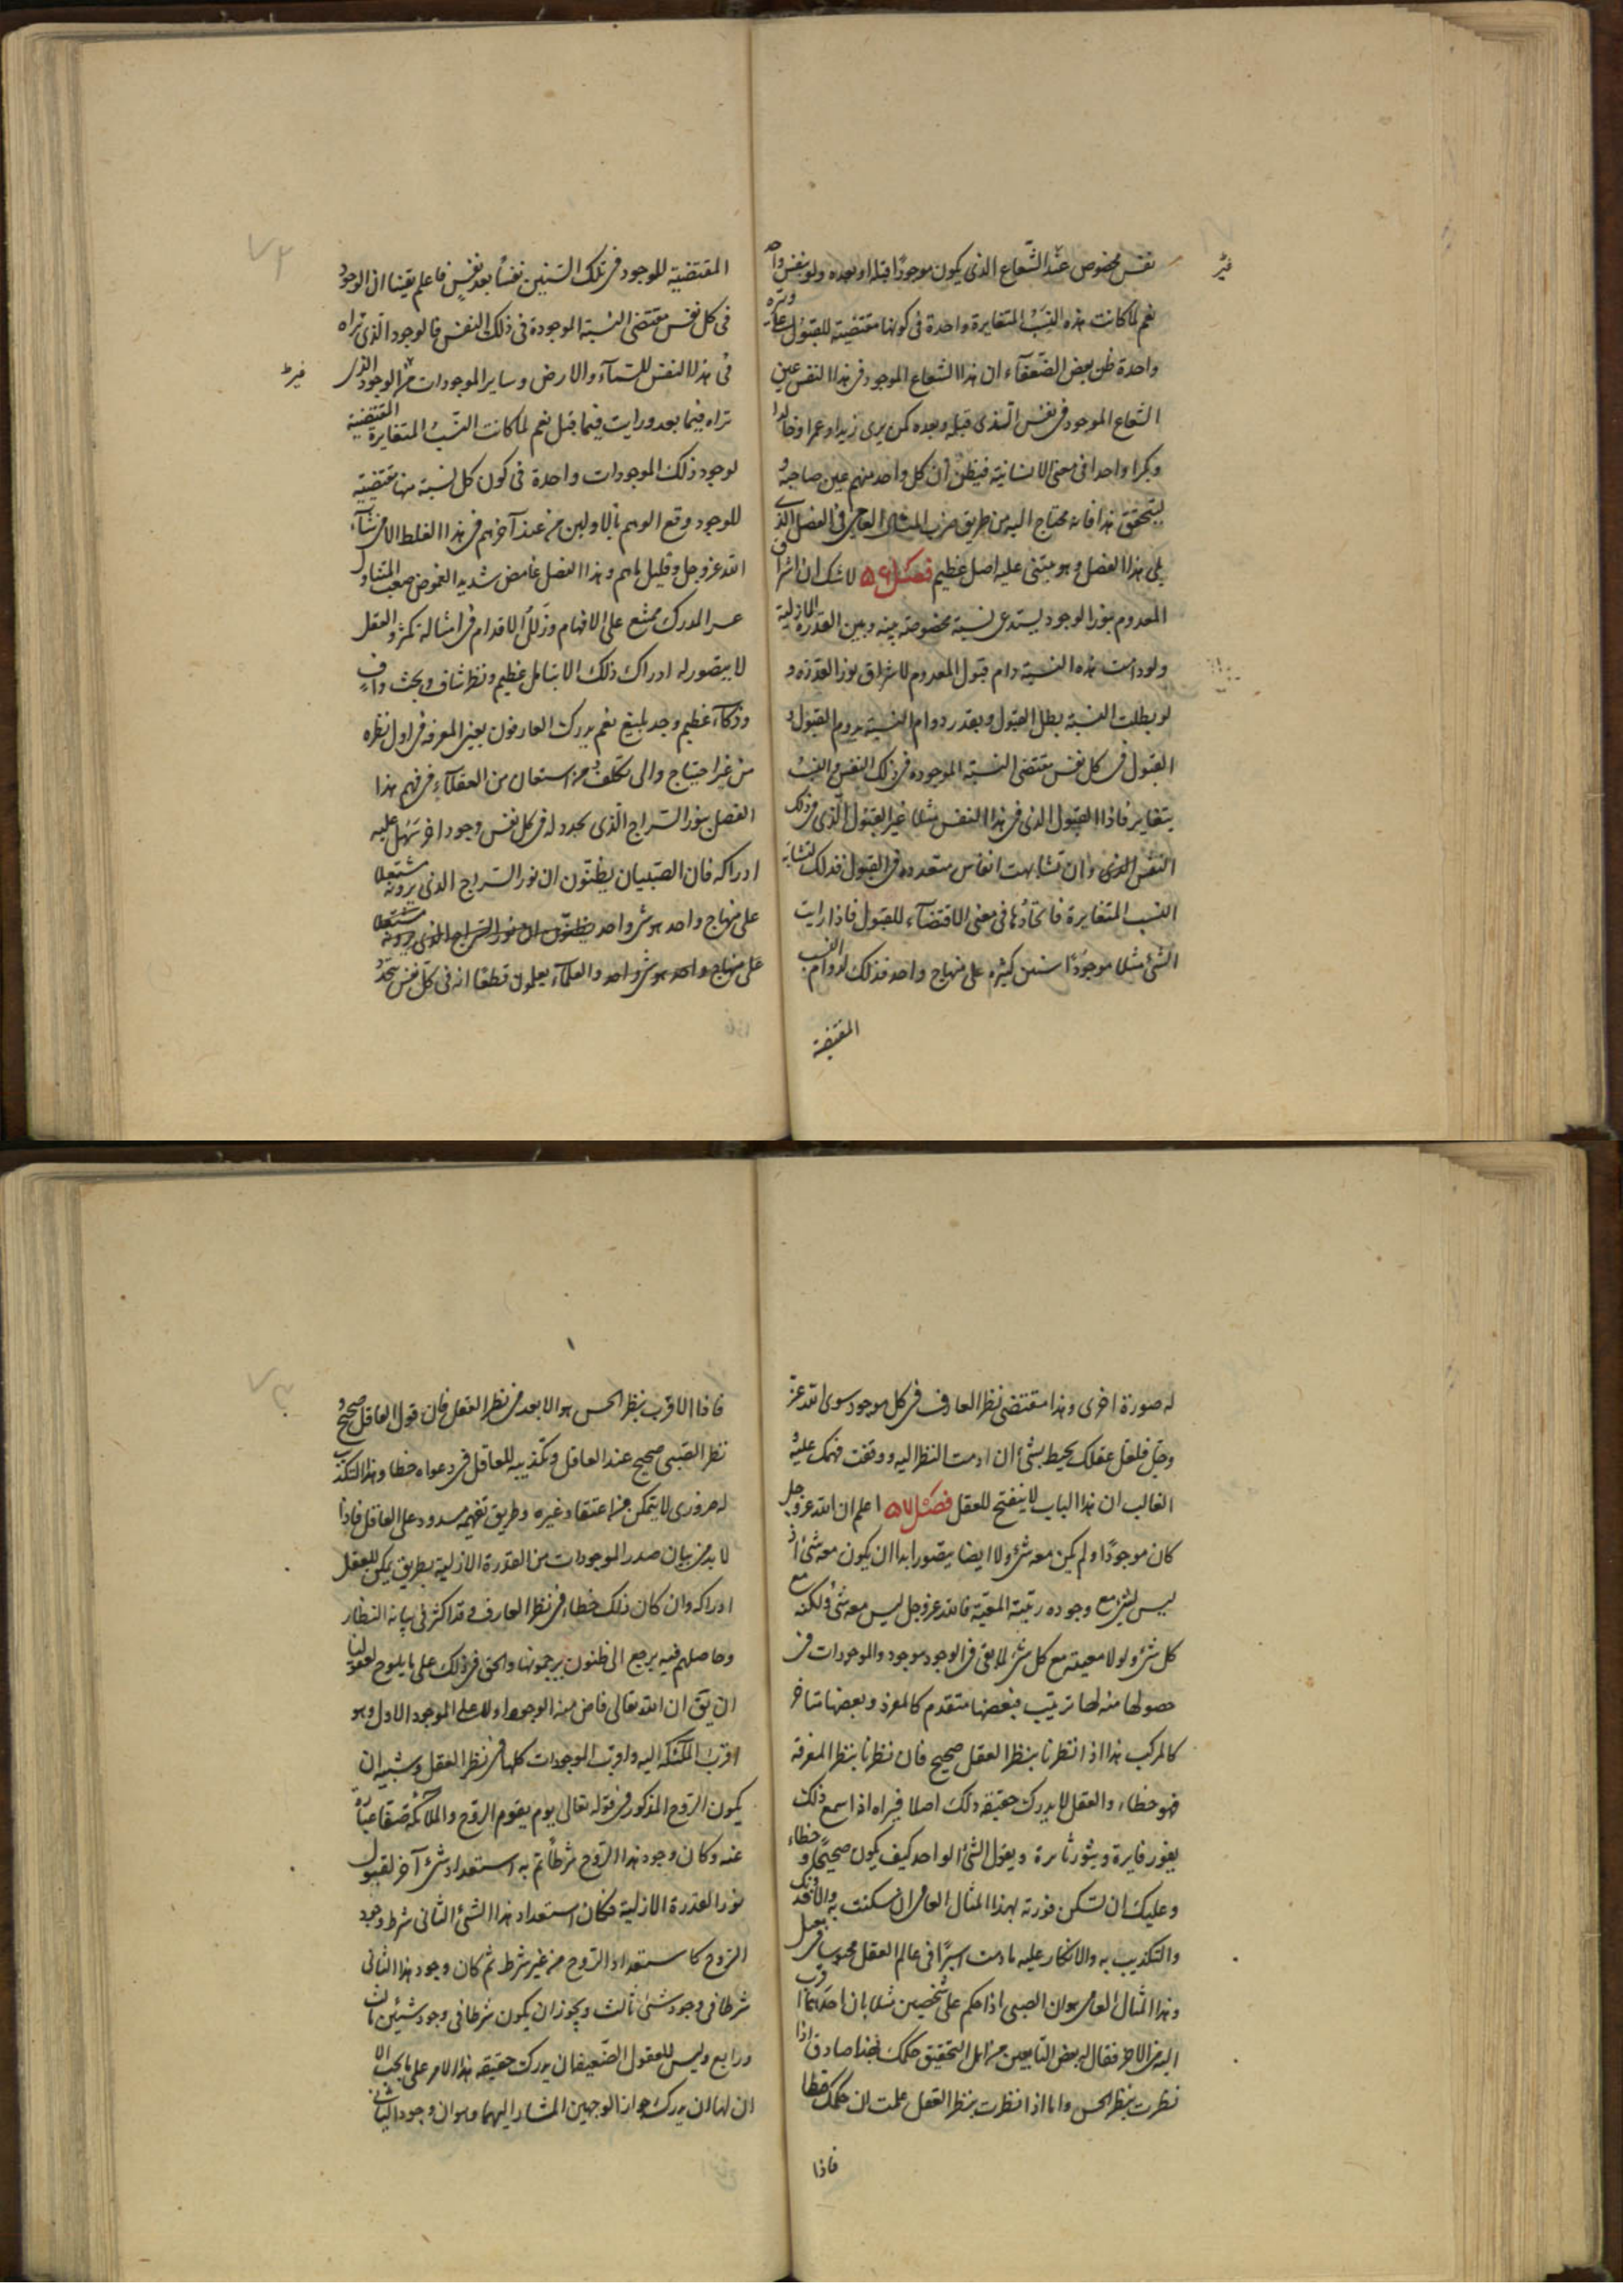 نفس مخصوص غير الشعاع الذى يكون موجودًا قبله او بعده ولو بنفس واحد
نعم لما كانت هذه النسب المتغايرة واحدة فى كونها مقتضية للقبول على وتيرة
واحدة ظن بعض الضعفاء ان هذا الشعاع الموجود فى هذا النفس عين
الشعاع الموجود فى نفس الذى قبله وبعده كمن يرى زيدا وعمرا وخالدا
وبكرا واحدا فى معنى الانسانية فيظن ان كل واحد منهم عين صاحبه و
ليتحقق هذا فانه محتاج اليه من طريق ضرب المثال العامى فى الفصل الذى
يلى هذا الفصل وهو مبتنى عليه اصل عظيم فصل ٥٦ لا شك ان اشراق
المعدوم بنور الوجود يستدعى نسبة مخصوصة بينه وبين القدرة الازلية
ولو دامت هذه النسبة دام قبول المعدوم لاشراق نور القدرة و
لو بطلت النسبة بطل القبول وبقدر دوام النسبة يدوم القبول و
القبول فى كل نفس مقتضى النسبة الموجودة فى ذلك النفس والنسب
يتغاير فاذا القبول الذى فى هذا النفس مثلا غير القبول الذى فى ذلك
النفس الذى وان تشابهت انفاس متعددة فى القبول فذلك لتشابه
النسب المتغايرة فاتحادها فى معنى الاقتضاء للقبول فاذا رايت
الشئ مثلا موجودًا سنين كثيرة على منهاج واحد فذلك لدوام النسب
المقتضية
المقتضية للوجود فى تلك السنين نفسًا بعد نفس فاعلم يقينا ان الوجود
فى كل نفس مقتضى النسبة الموجودة فى ذلك النفس فالوجود الذى تراه
فى هذا النفس للسماء والارض وساير الموجودات غير الوجود الذى
تراه فيما بعد ورايت فيما قبل نعم لما كانت النسب المتغايرة المقتضية
لوجود ذلك الموجودات واحدة فى كون كل نسبة منها مقتضية
للوجود وقع الوهم بالاولين من عند آخرهم فى هذا الغلط الا من شاء
الله عز وجل وقليل ما هم وهذا الفصل غامض شديد الغموض صعب المتناول
عسر المدرك ممتنع على الافهام وزلل الاقدام فى امثاله تكثر والعقل
لا يتصور له ادراك ذلك الا بتامل عظيم ونظر شاف وبحث واف
وذكاء عظيم وجد بليغ نعم يدرك العارفون بعين المعرفة فى اول نظره
من غير احتياج والى تكلف من استعان من العقلاء فى فهم هذا
الفصل بنور السراج الذى يجدد له فى كل نفس وجود اخر سهل عليه
ادراكه فان الصبيان يظنون ان نور السراج الذى يرونه مشتعلا
على منهاج واحد هو شئ واحد يظنون ان نور السراج الذى يرونه مشتعلا
على منهاج واحد هو شئ واحد والعلماء يعلمون قطعًا انه فى كل نفس يتجدد
له صورة اخرى وهذا مقتضى نظر العارف فى كل موجود سوى الله عز
وجل فلعل عقلك يحيط بشئ ان ادمت النظر اليه ووقفت فهمك عليه
الغالب ان هذا الباب لا ينفتح للعقل فصل ٥٧ اعلم ان الله عز وجل
كان موجودًا ولم يكن معه شئ ولا ايضا يتصور ابدا ان يكون معه شئ اذ
ليس لشئ مع وجوده رتبة المعية فالله عز وجل ليس معه شئ ولكنه مع
كل شئ ولولا معيته مع كل شئ لما بقى فى الوجود موجود والموجودات فى
حصولها منه لها ترتيب فبعضها متقدم كالمفرد وبعضها متاخر
كالمركب هذا اذا نظرنا بنظر العقل صحيح فان نظرنا بنظر المعرفة
فهو خطاء والعقل لا يدرك حقيقة ذلك اصلا فيراه اذا سمع ذلك
يفور فايرة ويثور ثايرة ويقول الشئ الواحد كيف يكون صحيحًا وخطاء
وعليك ان تسكن فورته بهذا المثال العامى ان سكنت به والا فعذرك
والتكذيب به والانكار عليه ما دمت اسيرًا فى عالم العقل محبوسا فى
وهذا المثال العامى هو ان الصبى اذا حكم على شخصين مثلا بان احدهما اقرب
اليه من الاخر فقال له بعض التابعين من اهل التحقيق حكمك هذا صادق اذا
نظرت بنظر الحس واما اذا نظرت بنظر العقل علمت ان حكمك خطا
فاذا
فاذا الاقرب بنظر الحس هو الابعد فى نظر العقل فان قول العاقل صحيح و
نظر الصبى صحيح عند العاقل وتكذيبه للعاقل فى دعواه خطا وهذا التكذيب
له ضرورى لا يتمكن من اعتقاد غيره وطريق تفهيمه مسدود على العاقل فاذا
لا بد من بيان صدر الموجودات من القدرة الازلية بطريق يمكن للعقل
ادراكه وان كان ذلك خطاء فى نظر العارف وقد اكثر فى بيانه النظار
وحاصلهم فيه يرجع الى ظنون يرجمونها والحق فى ذلك على ما يلوح لعقولنا
ان يق ان الله تعالى فاض منه الوجود اولا على الموجود الاول وهو
اقرب الملئكة اليه واقرب الموجودات كلها فى نظر العقل ويشبه ان
يكون الروح المذكور فى قوله تعالى يوم يقوم الروح والملائكة صفا عبارة
عنه وكان وجود هذا الروح شرطًا تم به استعداد شئ آخر لقبول
نور القدرة الازلية فكان استعداد هذا الشئ الثانى شرط وجود
الروح كاستعداد الروح من غير شرط ثم كان وجود هذا الثانى
شرطا فى وجود شئ ثالث ويجوز ان يكون شرطا فى وجود شيئين ثالث
ورابع وليس للعقول الضعيفة ان يدرك حقيقة هذا الامر على ما يجب الا
ان لها ان يدرك جواز الوجهين المشار اليهما وهو ان وجود الثانى